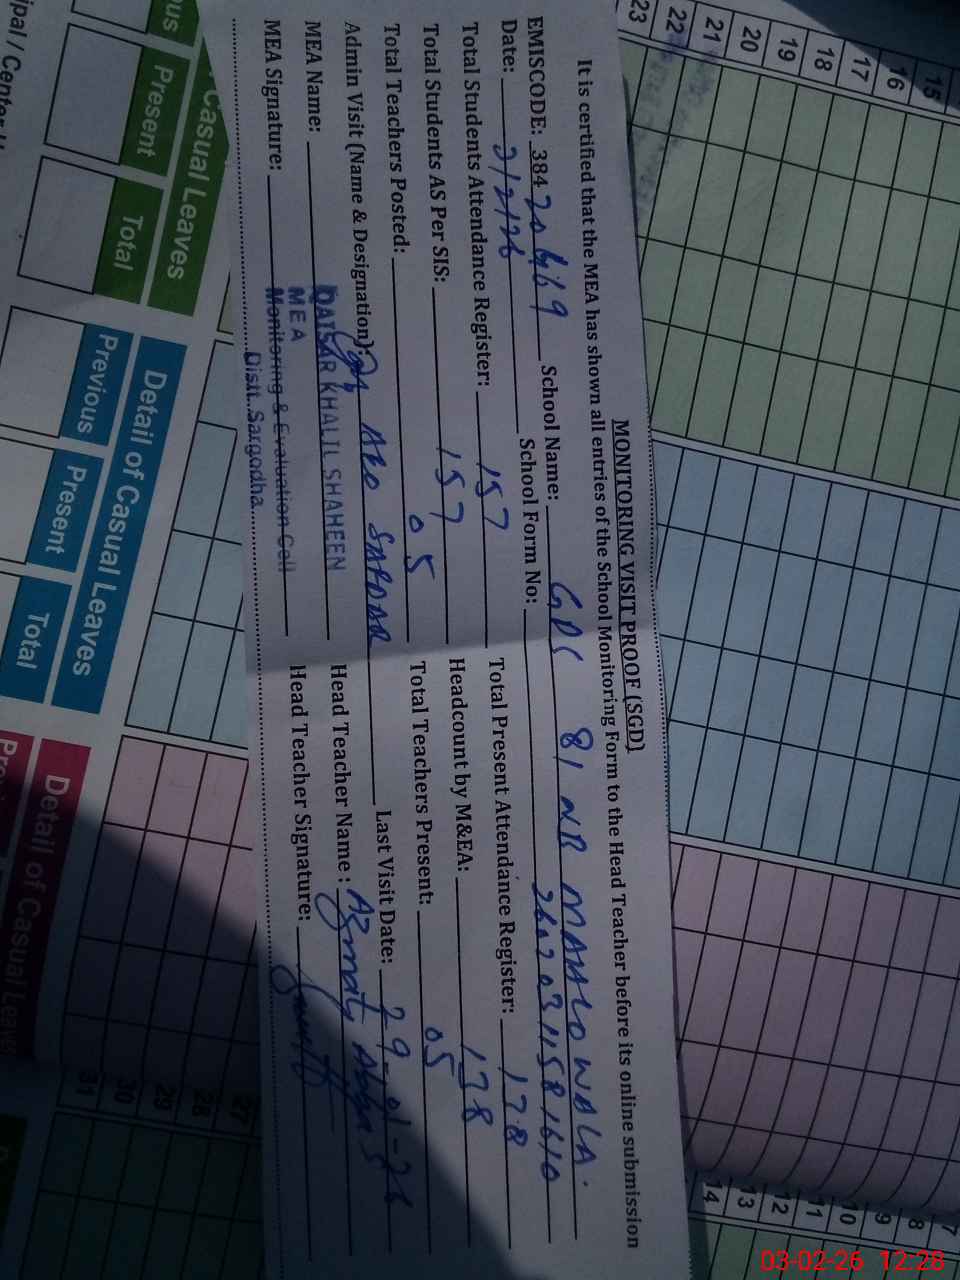 MONITORING VISIT PROOF (SGD)
It is certified that the MEA has shown all entries of the School Monitoring Form to the Head Teacher before its online submission
EMISCODE: 384 20469 School Name: GPS 81 NB MAHLOWALA.
Date: 3/2/26 School Form No:
Total Students Attendance Register: 157 Total Present Attendance Register: 138
Total Students AS Per SIS: 157 Headcount by M&EA: 138
Total Teachers Posted: 05 Total Teachers Present: 05
Admin Visit (Name & Designation): AEO Last Visit Date: 29-01-26
MEA Name: QAISAR KHALIL SHAHEEN Head Teacher Name: Abbas
MEA
MEA Signature: Monitoring & Evaluation Cell Head Teacher Signature:
Distt. Sargodha
Casual Leaves
Present
Total
Detail of Casual Leaves
Previous
Present
Total
Detail of Casual Leaves
23
22
21
20
19
18
17
16
15
14
13
12
11
10
9
8
7
31
30
29
28
27
03-02-26 12:28